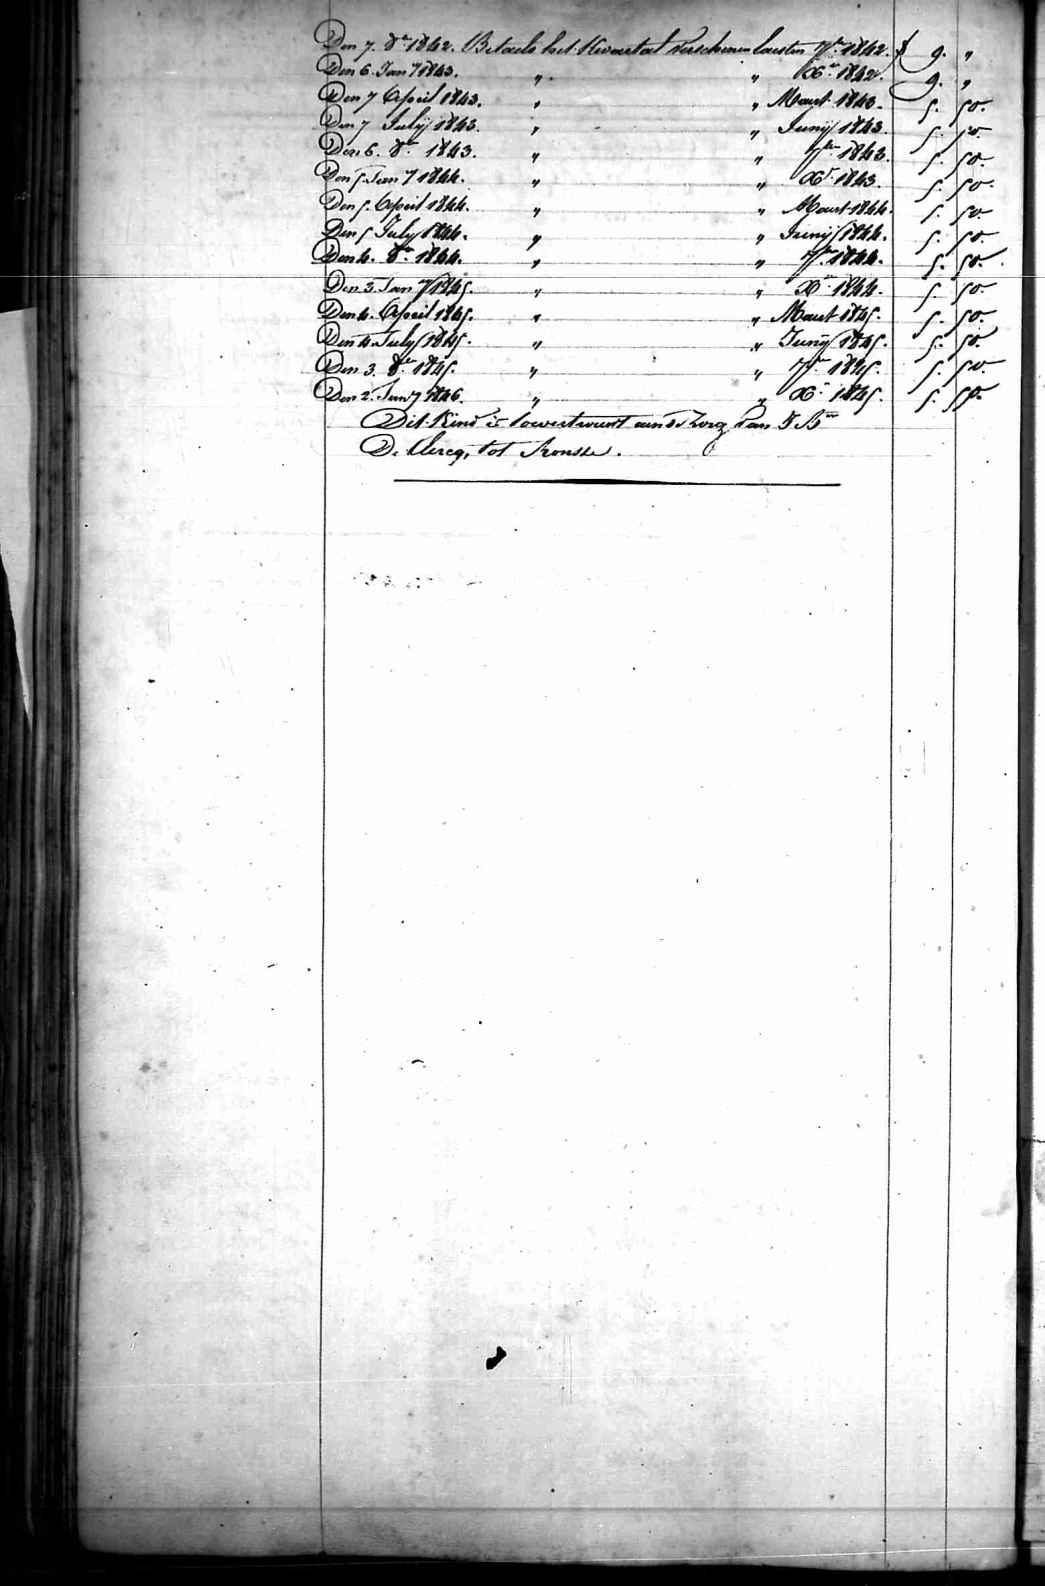 Den 7. 8er 1842. Betaelt het Kwartael verschenen laesten 7ber 1842. f 9. "
Den 6. Jany 1843. " " Xer 1842. 9. "
Den 7 April 1843. " " Maart 1843. 5. 50.
Den 7 July 1843. " " Junij 1843. 5. 50.
Den 6. 8er 1843. " " 7ber 1843. 5. 50.
Den 5. Jany 1844. " " Xr 1843. 5. 50.
Den 5. April 1844. " " Maart 1844. 5. 50.
Den 5 July 1844. " " Junij 1844. 5. 50.
Den 4. 8er 1844. " " 7ber 1844. 5. 50.
Den 3. Jany 1845. " " Xer 1844. 5. 50.
Den 4. April 1845. " " Maart 1845. 5. 50.
Den 4 July 1845. " " Junij 1845. 5. 50.
Den 3. 8ber 1845. " " 7ber 1845. 5. 50.
Den 2. Jany 1846. " " Xr 1845. 5.
Dit Kind is toevertrouwt aen de Zorg van
De Clercq, tot Ronsse.